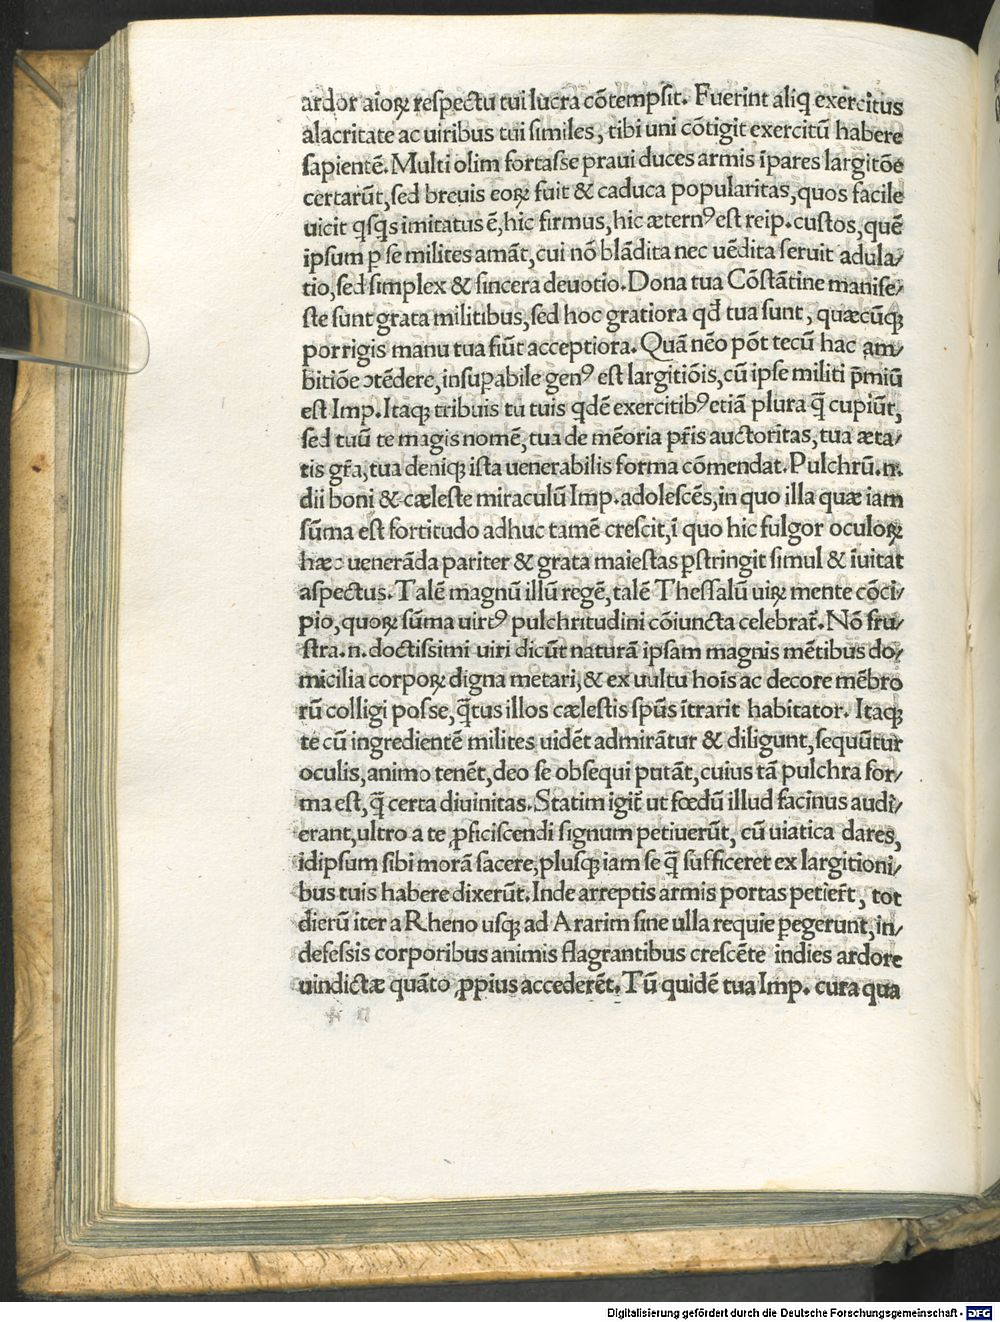 ardor aioꝝ respectu tui lucra cōtempsit. Fuerint aliq̃ exercitus
alacritate ac uiribus tui similes, tibi uni cōtigit exercitū habere
sapientē. Multi olim fortasse praui duces armis īpares largitōe
certarūt, sed breuis eoꝝ fuit & caduca popularitas, quos facile
uicit qsqs imitatus ē, hic firmus, hic æternꝰ est reip. custos, quē
ipsum ꝑ se milites amāt, cui nō blādita nec uēdita seruit adula/
tio, sed simplex & sincera deuotio. Dona tua Cōstātine manife/
ste sunt grata militibus, sed hoc gratiora qđ tua sunt, quæcūqꝫ
porrigis manu tua fiūt acceptiora. Quā nēo pōt tecū hac am/
bitiōe ↄtēdere, insuꝑabile genꝰ est largitiōis, cū ipse militi p̄miū
est Imp. Itaqꝫ tribuis tu tuis qdē exercitibꝰ etiā plura q̄ cupiūt,
sed tuū te magis nomē, tua de mēoria pr̄is auctoritas, tua æta/
tis gr̄a, tua deniqꝫ ista uenerabilis forma cōmendat. Pulchrū .n.
dii boni & cæleste miraculū Imp. adolescēs, in quo illa quæ iam
sūma est fortitudo adhuc tamē crescit, ī quo hic fulgor oculoꝝ
hæc uenerāda pariter & grata maiestas ꝑstringit simul & īuitat
aspectus. Talē magnū illū regē, talē Thessalū uiꝝ mente cōci/
pio, quoꝝ sūma uirtꝰ pulchritudini cōiuncta celebrat̄. Nō fru/
stra .n. doctissimi uiri dicūt naturā ipsam magnis mētibus do/
micilia corpoꝝ digna metari, & ex uultu hoīs ac decore mēbro
rū colligi posse, q̄tus illos cælestis sp̄us ītrarit habitator. Itaqꝫ
te cū ingredientē milites uidēt admirātur & diligunt, sequūtur
oculis, animo tenēt, deo se obsequi putāt, cuius tā pulchra for/
ma est, q̄ certa diuinitas. Statim igit̄ ut fœdū illud facinus audi/
erant, ultro a te ꝓficiscendi signum petiuerūt, cū uiatica dares,
idipsum sibi morā facere, plusqꝫ iam se q̄ sufficeret ex largitioni/
bus tuis habere dixerūt. Inde arreptis armis portas petier̄t, tot
dierū iter a Rheno usqꝫ ad Ararim sine ulla requie ꝑegerunt, in/
defessis corporibus animis flagrantibus crescēte indies ardore
uindictæ quāto ꝓpius accederēt. Tū quidē tua Imp. cura qua
Digitalisierung gefördert durch die Deutsche Forschungsgemeinschaft - DFG